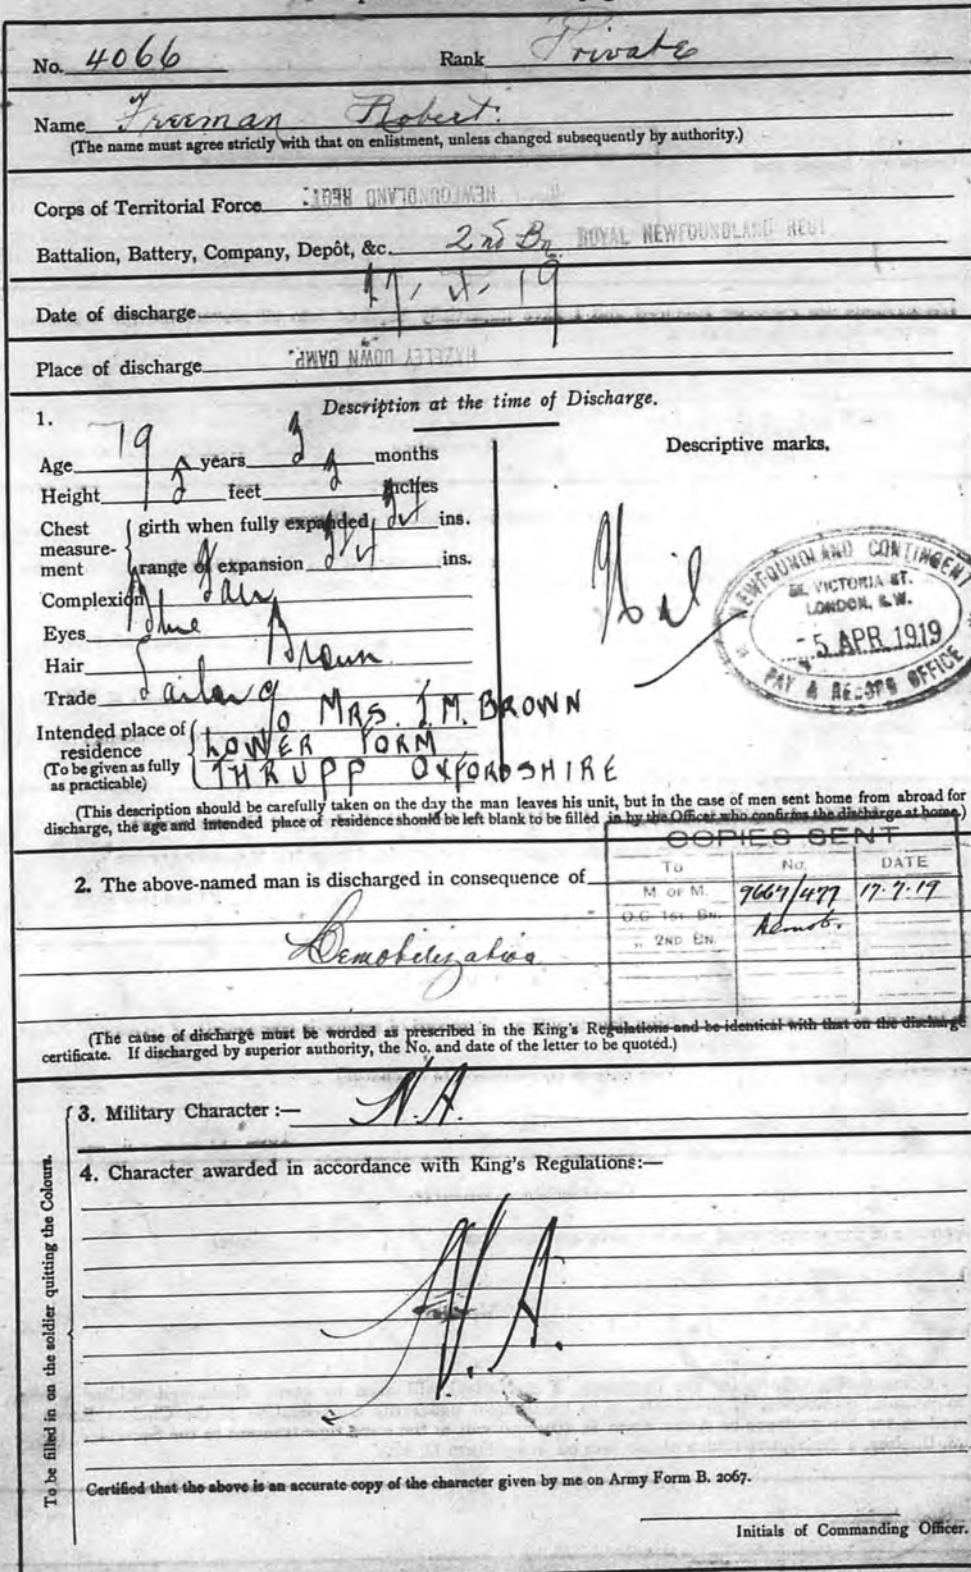 No. 4066 Rank Private
Name Freeman Robert.
(The name must agree strictly with that on enlistment, unless changed subsequently by authority.)
Corps of Territorial Force NEWFOUNDLAND REGT.
Battalion, Battery, Company, Depôt, &c. 2nd Bn ROYAL NEWFOUNDLAND REGT
Date of discharge 19
Place of discharge HAZELEY DOWN CAMP.
1. Description at the time of Discharge.
Age 19 years 3 months
Descriptive marks.
Height feet inches
Chest measurement { girth when fully expanded ins.
range of expansion ins.
Nil
Complexion Fair
Eyes Blue
Hair Brown
Trade Sailor
Intended place of residence (To be given as fully as practicable) c/o MRS. J.M. BROWN
LOWER FORM
THRUPP OXFORDSHIRE
NEWFOUNDLAND CONTINGENT
VICTORIA ST.
LONDON, S.W.
5 APR 1919
PAY & RECORD OFFICE
(This description should be carefully taken on the day the man leaves his unit, but in the case of men sent home from abroad for
discharge, the age and intended place of residence should be left blank to be filled in by the Officer who confirms the discharge at home.)
COPIES SENT
To No. DATE
M. OF M. 9667/477 17.7.19
O.C. 1ST BN. Demob.
„ 2ND BN.
2. The above-named man is discharged in consequence of
Demobilization
(The cause of discharge must be worded as prescribed in the King's Regulations and be identical with that on the discharge
certificate. If discharged by superior authority, the No. and date of the letter to be quoted.)
To be filled in on the soldier quitting the Colours.
3. Military Character :— N.A.
4. Character awarded in accordance with King's Regulations:—
N.A.
Certified that the above is an accurate copy of the character given by me on Army Form B. 2067.
Initials of Commanding Officer.